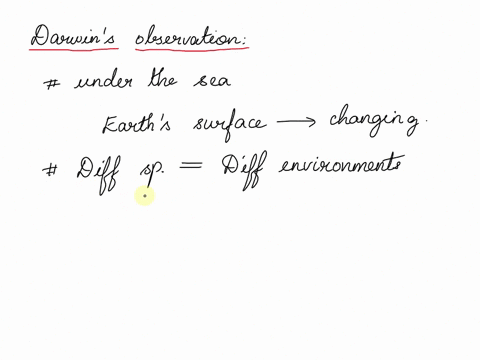 Darwin's observation:
# under the sea
Earth's surface → changing.
# Diff sp. = Diff environments